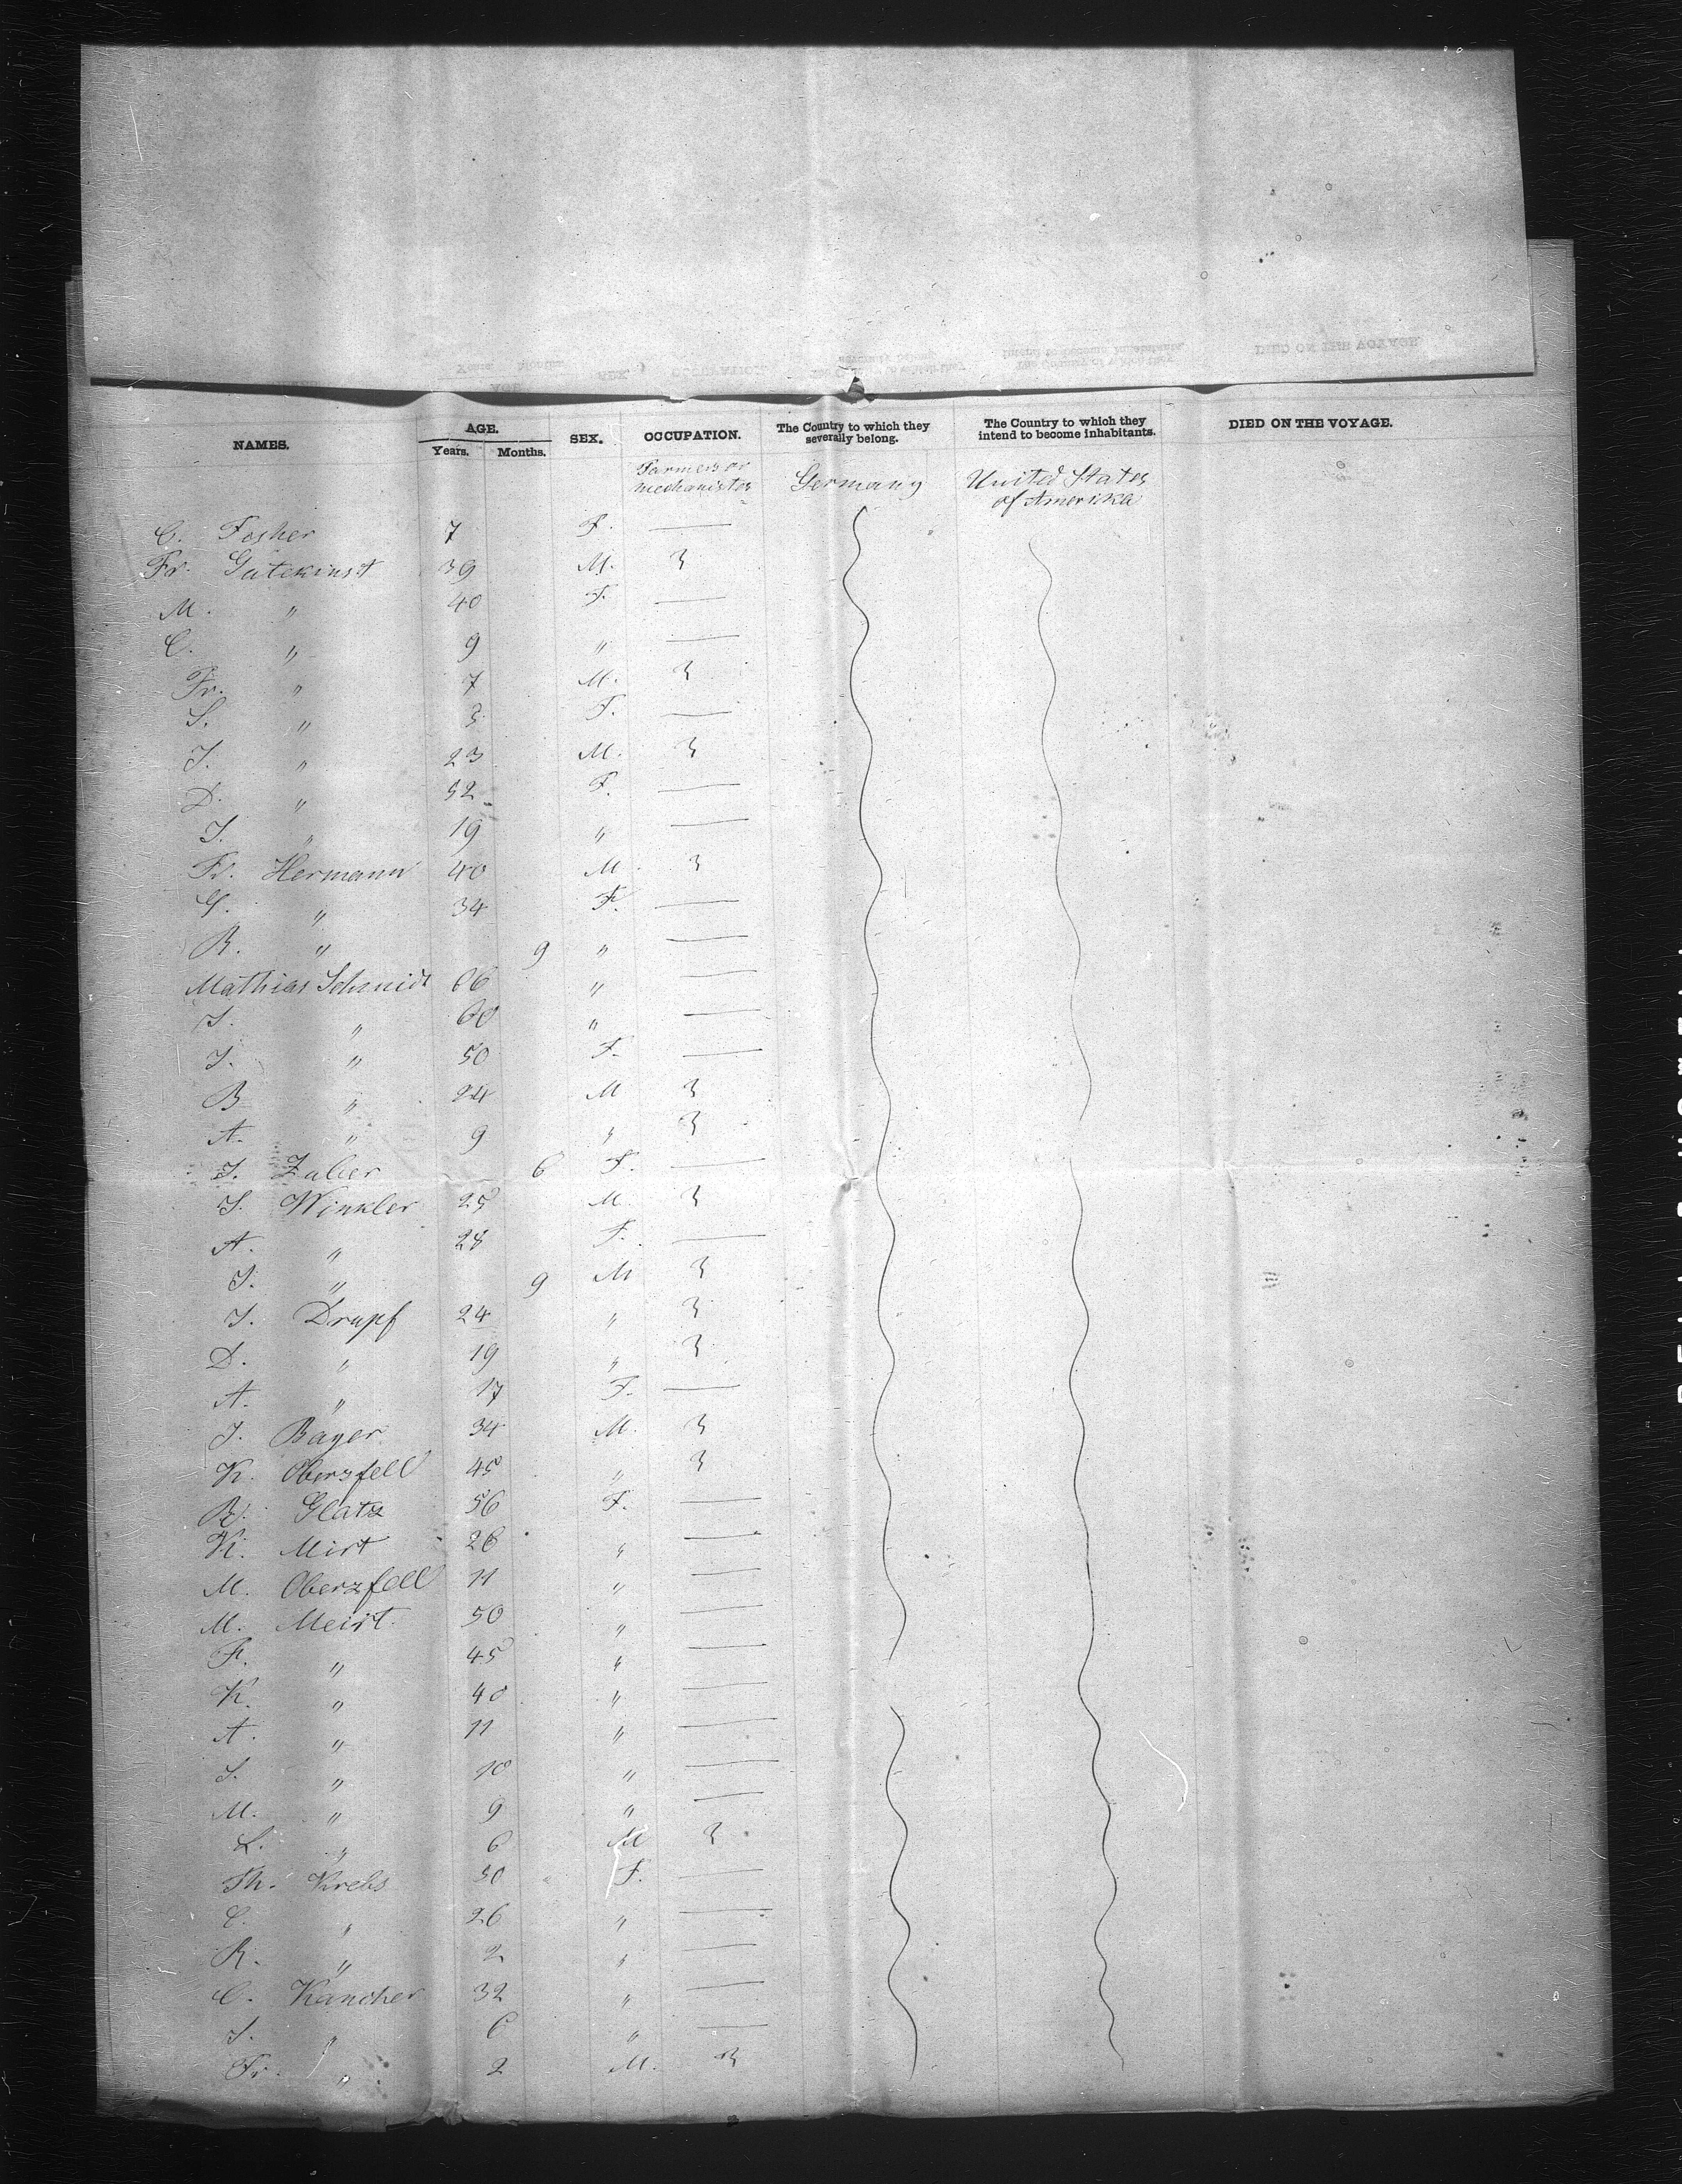 NAMES. AGE. SEX. OCCUPATION. The Country to which they severally belong. The Country to which they intend to become inhabitants. DIED ON THE VOYAGE.
Years. Months.
Farmers or mechanister Germany United States of Amerika
C. Fosher 7 F. —
Fr. Gütekinst 39 M. 3
M. " 40 F. —
C. " 9 " —
Fr. " 7 M. 3
S. " 3 F. —
J. " 23 M. 3
D. " 52 F. —
J. " 19 " —
Fr. Hermann 40 M. 3
G. " 34 F. —
R. " 9 " —
Mathias Schmidt 66 " —
J. " 60 " —
J. " 50 F. —
B " 24 M 3
A. " 9 " 3
J. Zuber 6 F. —
J. Winkler 25 M. 3
A. " 28 F. —
J. " 9 M 3
J. Drapf 24 " 3
D. " 19 " 3
A. " 17 F. —
J. Bayer 34 M. 3
K. Oberzfell 45 " 3
R. Glatz 56 F. —
K. Mirt 26 " —
M. Oberzfell 11 " —
M. Meirt. 50 " —
F. " 45 " —
K. " 40 " —
A. " 11 " —
J. " 10 " —
M. " 9 " —
L. " 6 M 3
Th. Krebs 30 F. —
C. " 26 " —
R. " 2 " —
C. Kancher 32 " —
J. " 6 " —
Fr. " 2 M. 3